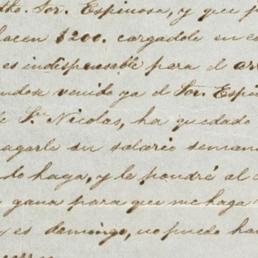 Sor. Espinosa, y que p
hacen $200. cargadole en c
es indispensable para el ar
endose venido ya el Sor. Espi
e Sn Nicolas, ha quedado
pagarle su salario semana
do haya, y le pondré al c
gana para que me haga
y es domingo, no puedo ha